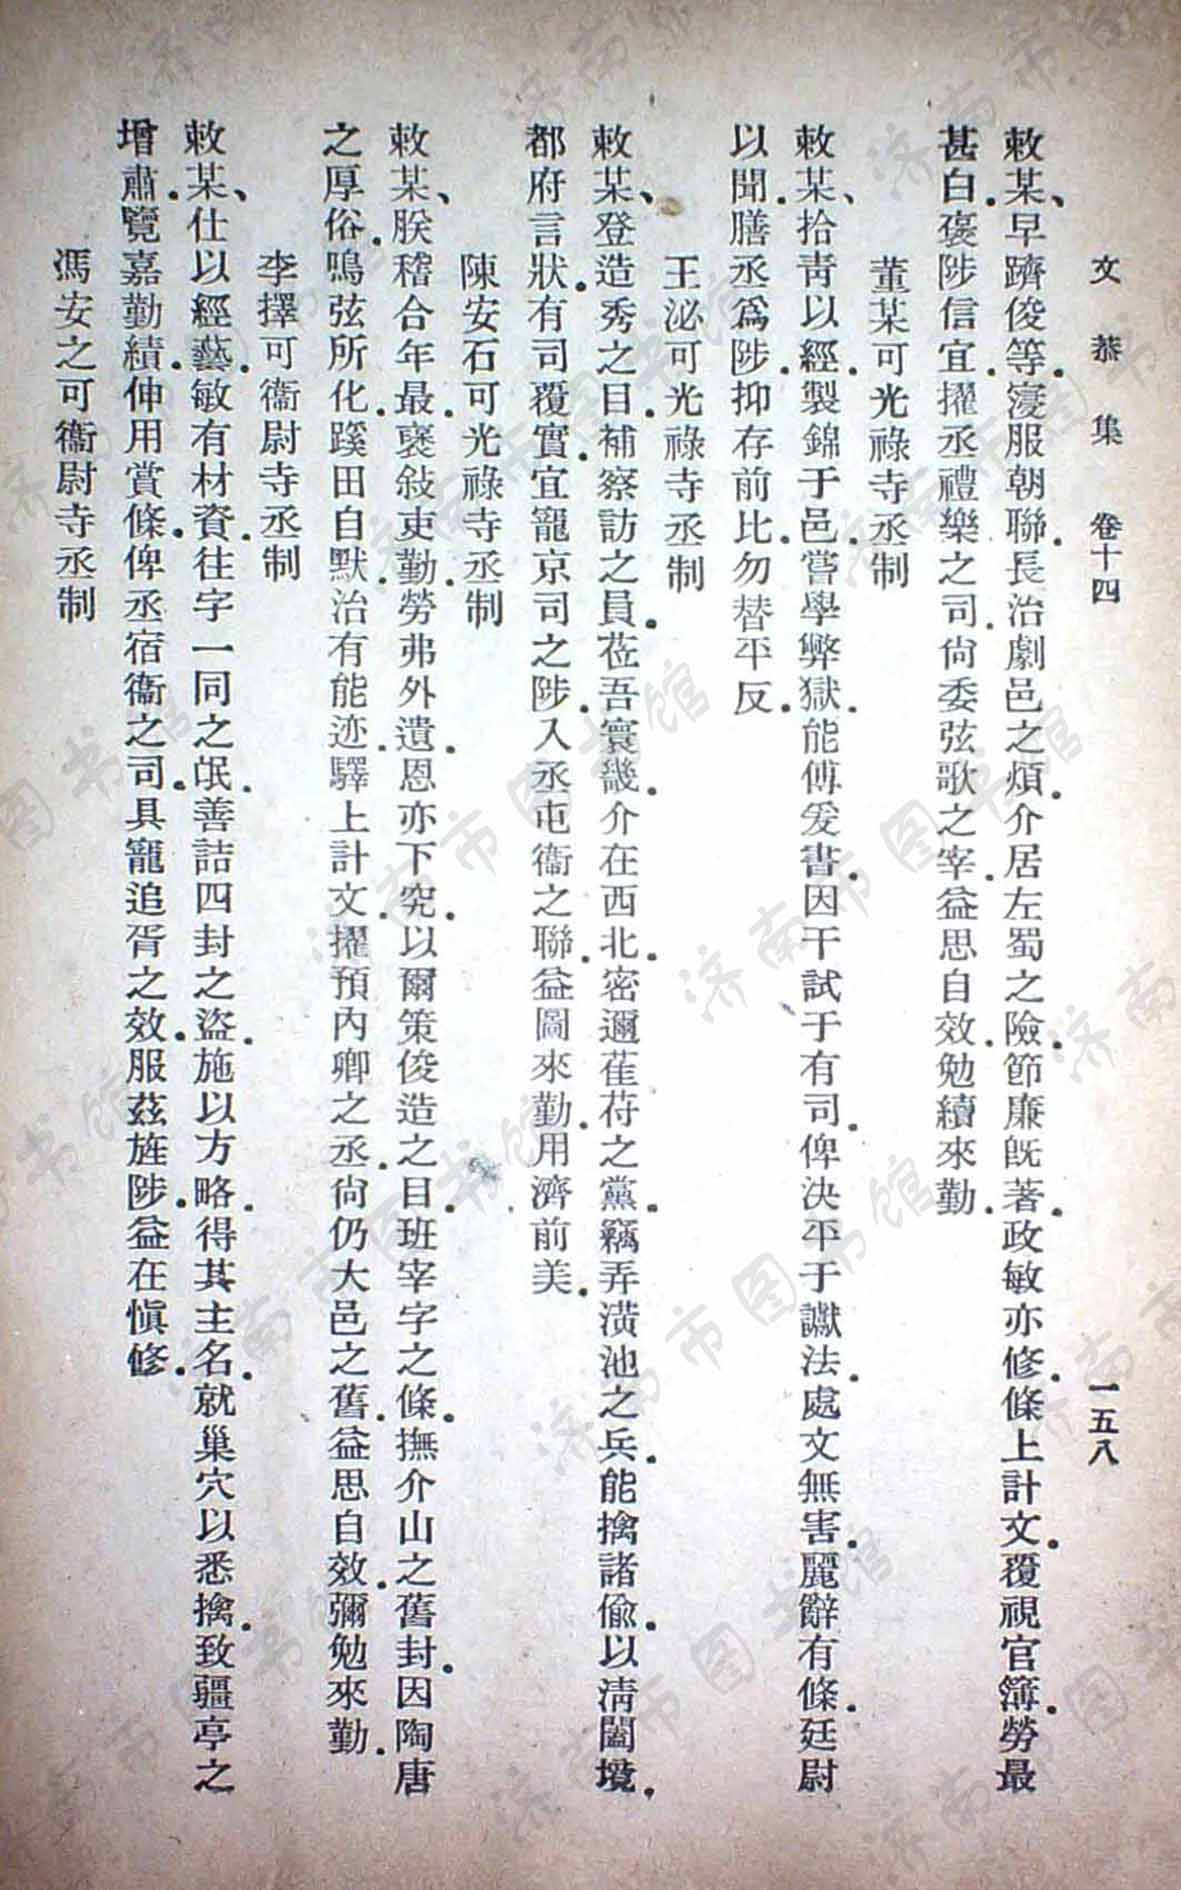 文恭集 卷十四 一五八
敕某、早躋俊等寖服朝聯長治劇邑之煩介居左蜀之險節廉旣著政敏亦修條上計文覆視官簿勞最
甚白褒陟信宜擢丞禮樂之司尙委弦歌之宰益思自效勉續來勤
董某可光祿寺丞制
敕某、拾青以經製錦于邑嘗學弊獄能傅爰書因干試于有司俾決平于讞法處文無害麗辭有條廷尉
以聞膳丞爲陟抑存前比勿替平反
王泌可光祿寺丞制
敕某、登造秀之目補察訪之員莅吾寰畿介在西北密邇萑苻之黨竊弄潢池之兵能擒諸偷以淸闔境
都府言狀有司覆實宜寵京司之陟入丞屯衞之聯益圖來勤用濟前美
陳安石可光祿寺丞制
敕某、朕稽合年最褒敍吏勤勞弗外遺恩亦下究以爾策俊造之目班宰字之條撫介山之舊封因陶唐
之厚俗鳴弦所化蹊田自默治有能迹驛上計文擢預內卿之丞尙仍大邑之舊益思自效彌勉來勤
李擇可衞尉寺丞制
敕某、仕以經藝敏有材資往字一同之氓善詰四封之盜施以方略得其主名就巢穴以悉擒致疆亭之
增肅覽嘉勤績伸用賞條俾丞宿衞之司具寵追胥之效服茲旌陟益在愼修
馮安之可衞尉寺丞制